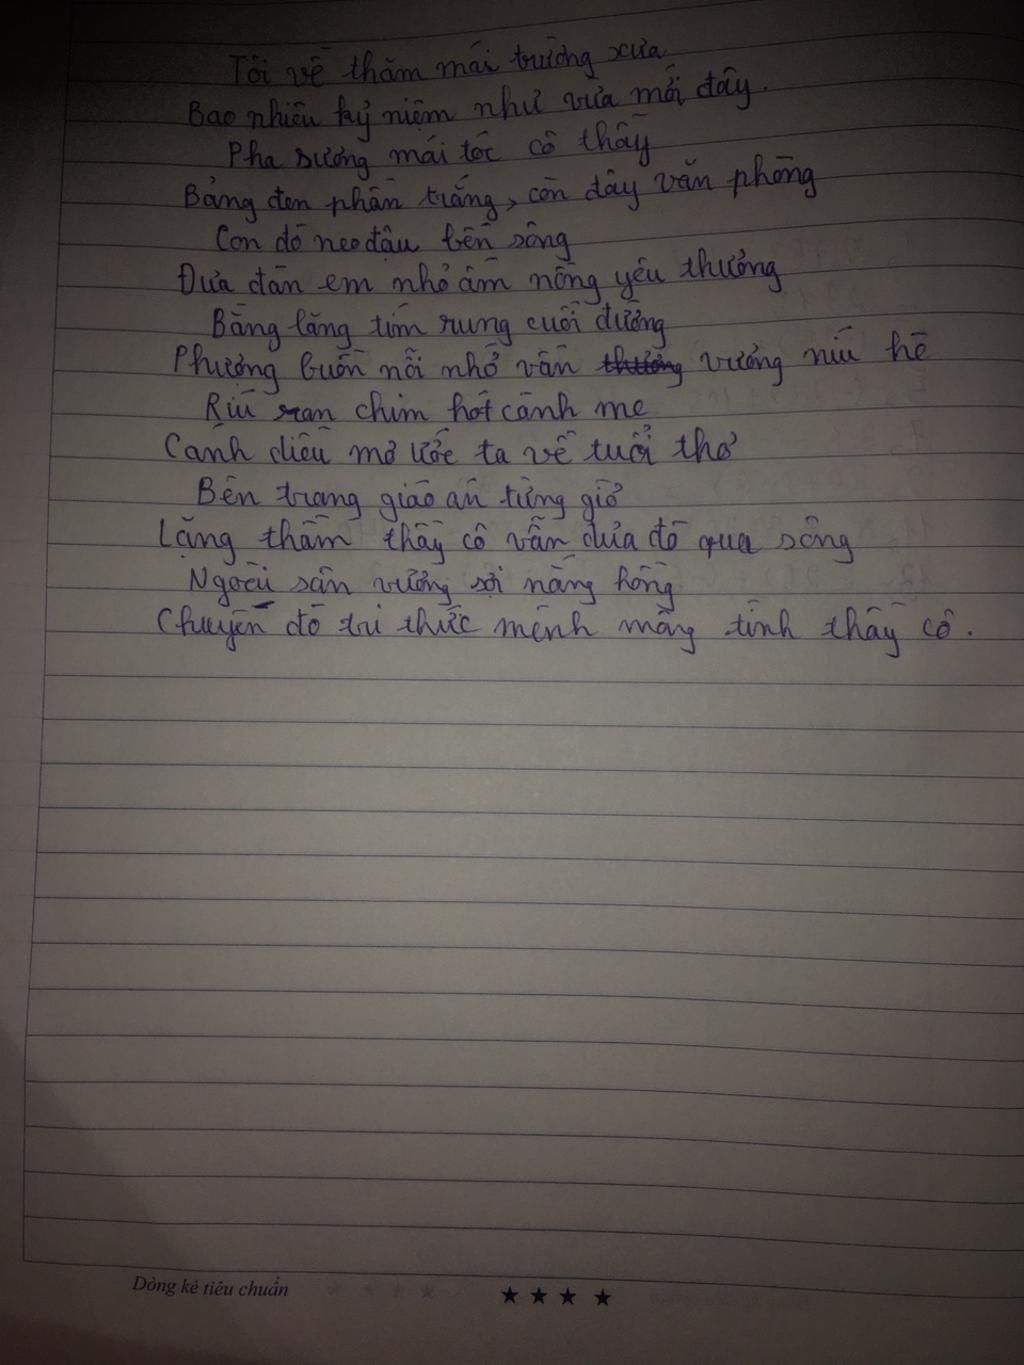 Tôi về thăm mái trường xưa
Bao nhiêu kỷ niệm như vừa mới đây.
Pha sương mái tóc cô thầy
Bảng đen phấn trắng, còn đây văn phòng
Con đò neo đậu bến sông
Đưa đàn em nhỏ ấm nồng yêu thương
Bằng lăng tím rung cuối đường
Phượng buồn nỗi nhớ vẫn thương vương níu hè
Ríu ran chim hót cành me
Cánh diều mơ ước ta về tuổi thơ
Bên trang giáo án từng giờ
Lặng thầm thầy cô vẫn đưa đò qua sông
Ngoài sân vương sợi nắng hồng
Chuyến đò tri thức mênh mông tình thầy cô.
Dòng kẻ tiêu chuẩn ★ ★ ★ ★